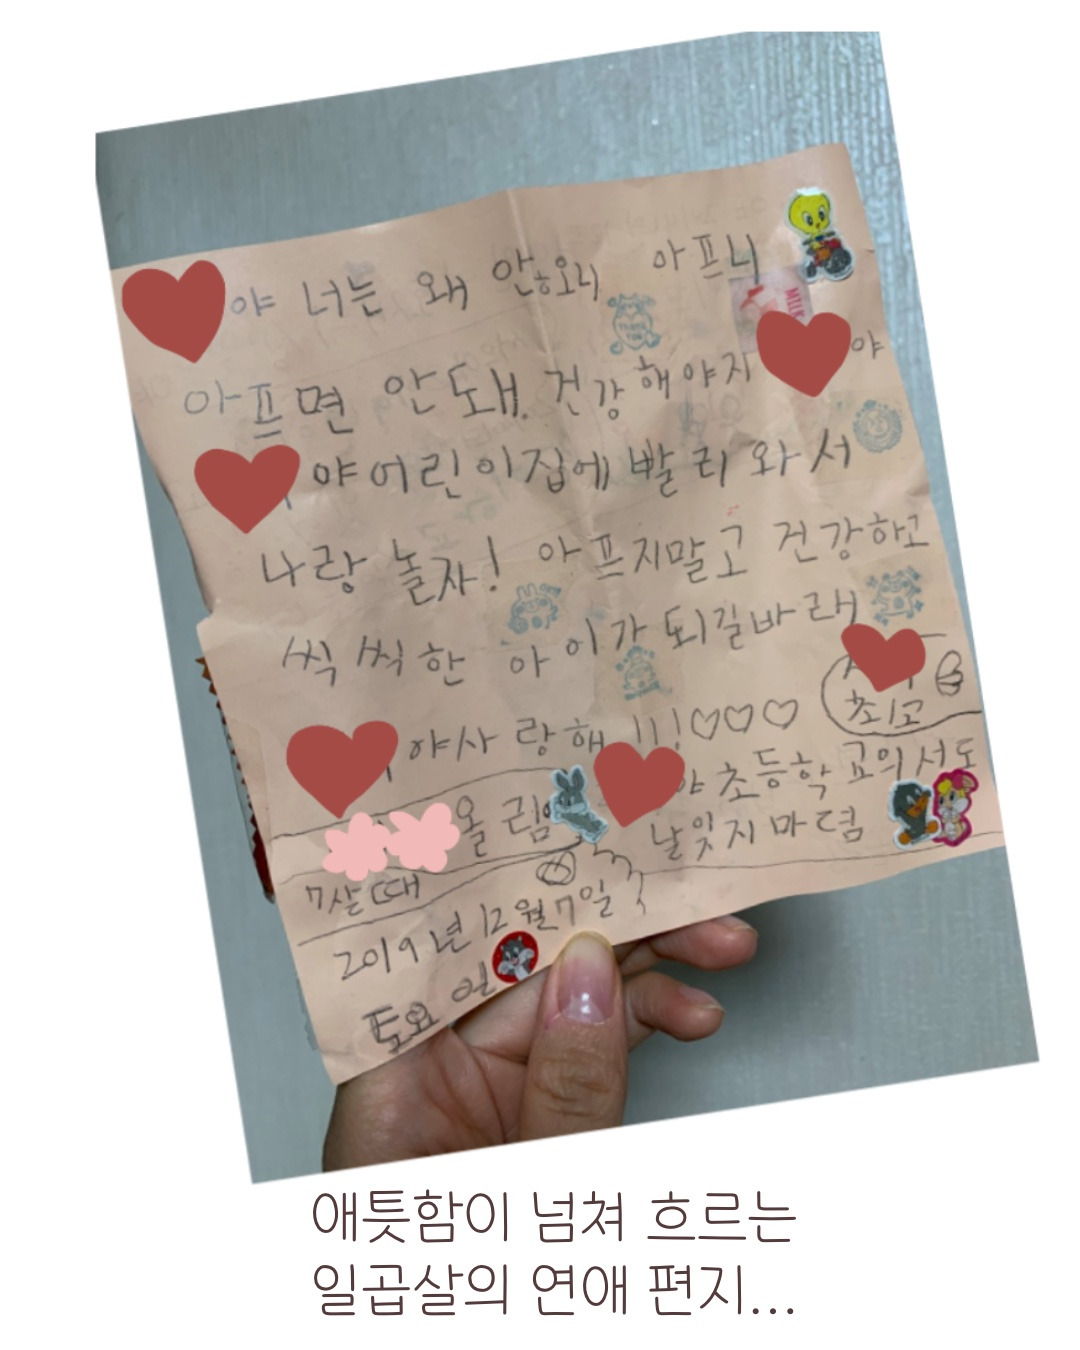 야 너는 왜 안ㅎ오니 아프니
아프면 안돼. 건강해야지 야
야 어린이집에 빨리 와서
나랑 놀자! 아프지말고 건강하고
씩씩한 아이가 되길바래
최고
야사랑해!!!♡♡♡
올림
야 초등학교의서도
날잊지마렴
7살때
2019년 12월 7일
토요일
THANK YOU
MILK
애틋함이 넘쳐 흐르는
일곱살의 연애 편지...